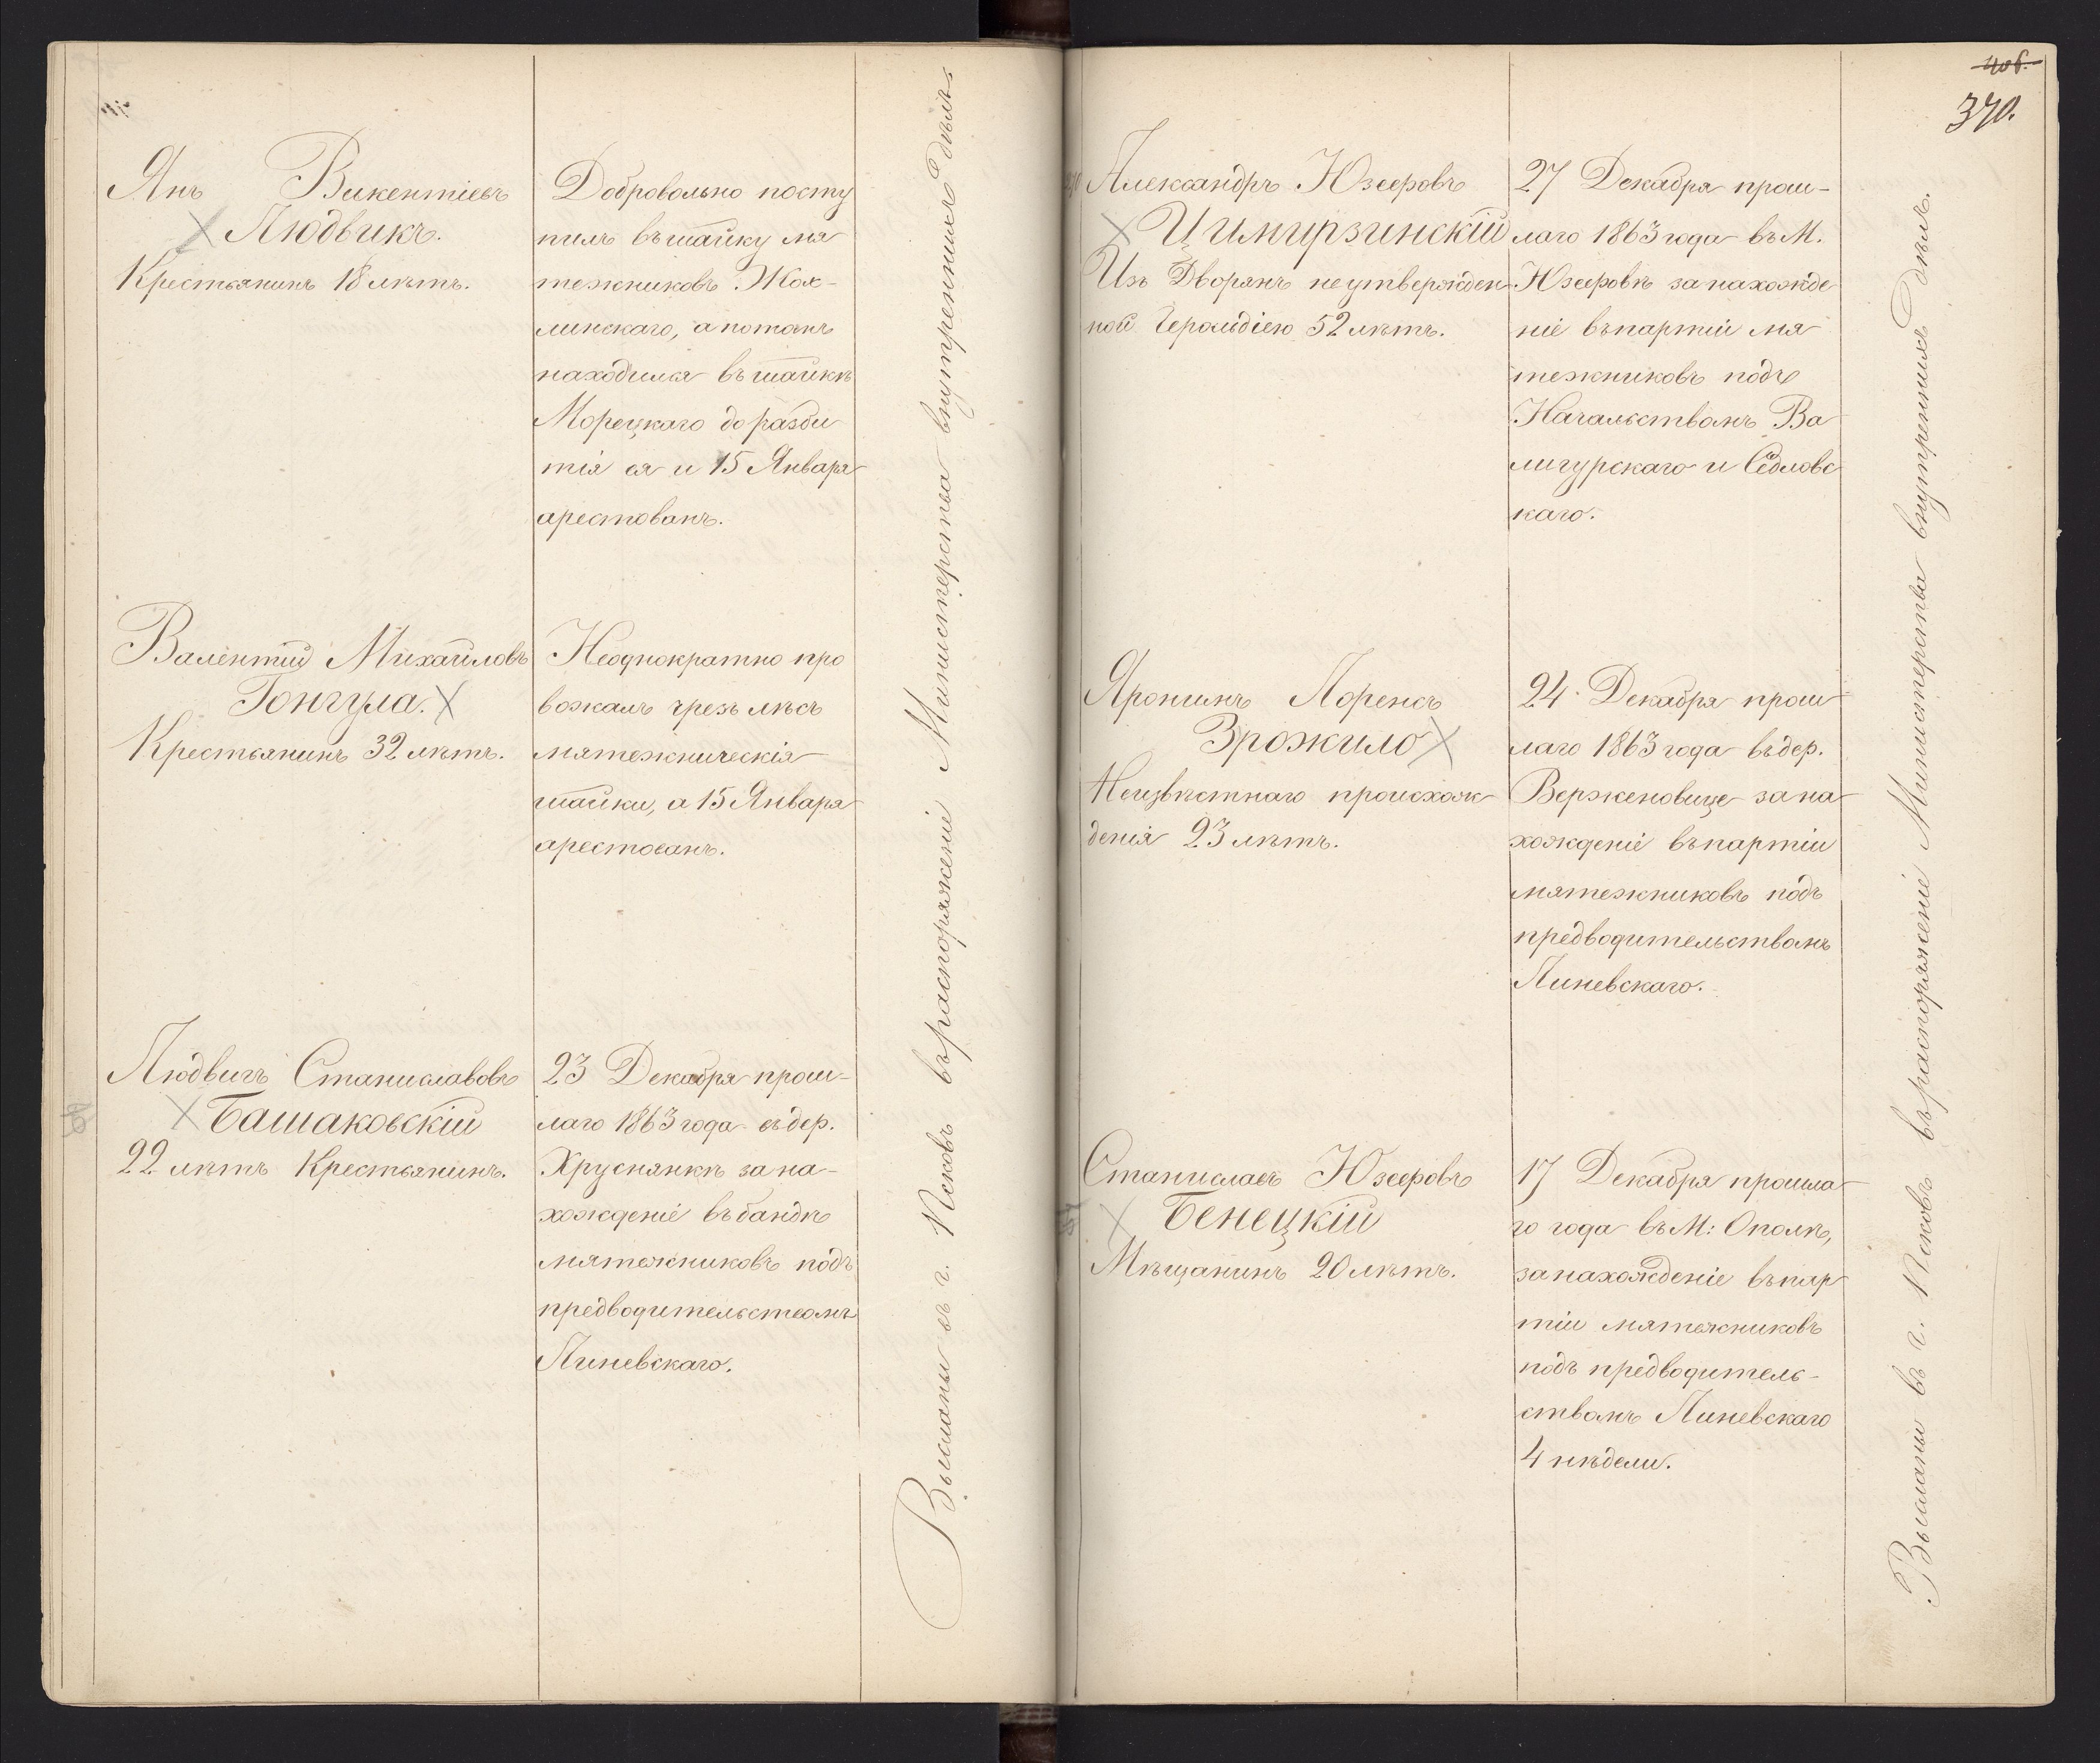 Янъ Викентіевъ
Людвикъ.
Крестьянинъ 18 лѣтъ.
Добровольно посту
пилъ въ шайку мя
тежниковъ Жок-
линскаго, а потомъ
находился въ шайкѣ
Морецкаго до разби
тія ея и 15 Января
арестованъ.
Валентій Михайловъ
Гонгула.
Крестьянинъ 32 лѣтъ.
Неоднократно про
вожалъ чрезъ лѣсъ
мятежническія
шайки, а 15 Января
арестованъ.
Людвигъ Станиславовъ
Башаковскій
22 лѣтъ Крестьянинъ.
23 Декабря прош-
лаго 1863 года въ дер.
Хруснянкѣ за на-
хожденіе въ бандѣ
мятежниковъ подъ
предводительствомъ
Линевскаго.
Высланы въ г. Псковъ въ распоряженіе Министерства внутреннихъ дѣлъ
406.
370.
Александръ Юзефовъ
Цимирзинскій
Изъ Дворянъ не утвержден
ной Герольдіею 52 лѣтъ.
27 Декабря прош-
лаго 1863 года въ М.
Юзефовѣ за нахожде
ніе въ партіи мя
тежниковъ подъ
Начальствомъ Ва
лигурскаго и Седловс
каго.
Яронимъ Лоренсъ
Зрожило
Неизвѣстнаго происхож
денія 23 лѣтъ.
24 Декабря прош
лаго 1863 года въ дер.
Верженовице за на
хожденіе въ партіи
мятежниковъ подъ
предводительствомъ
Линевскаго.
Станиславъ Юзефовъ
Бенецкій
Мѣщанинъ 20 лѣтъ.
17 Декабря прошла
го года въ М: Ополѣ,
за нахожденіе въ пар
тіи мятежниковъ
подъ предводитель-
ствомъ Линевскаго
4 недѣли.
Высланы въ г. Псковъ въ распоряженіе Министерства внутреннихъ дѣлъ.